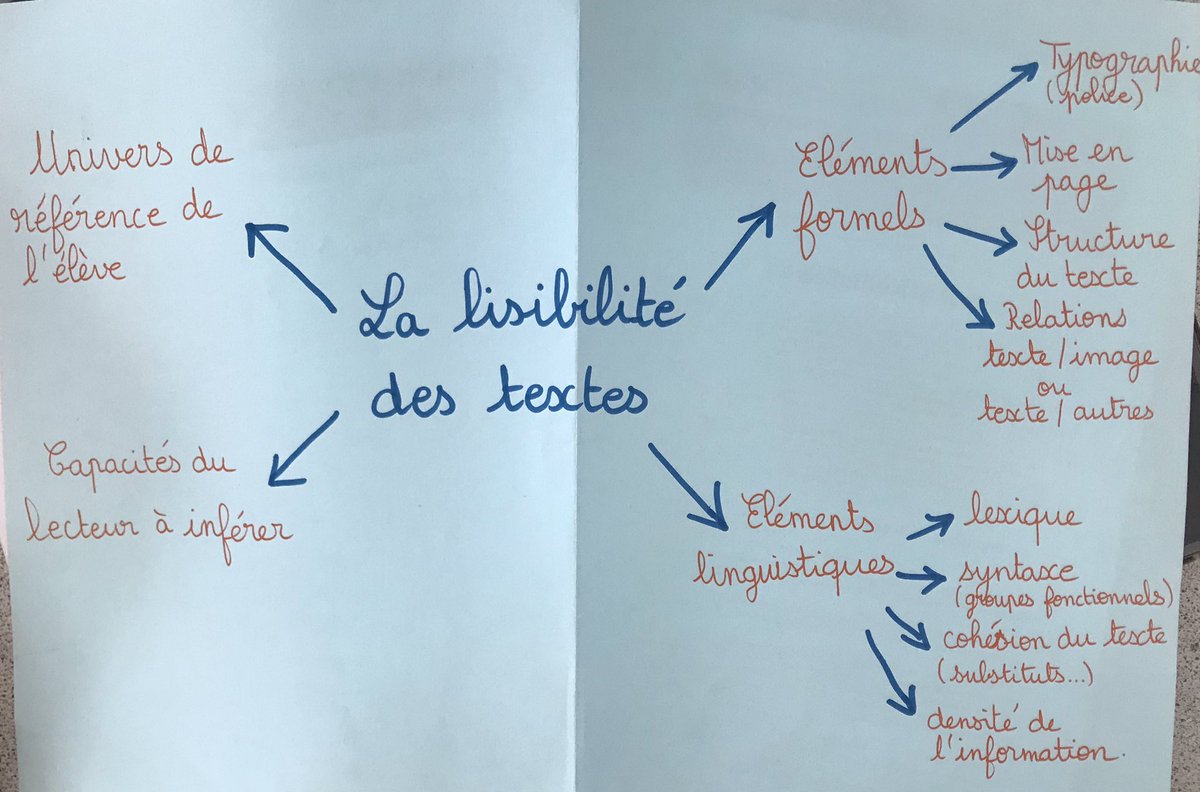 La lisibilité
des textes
Univers de
référence de
l'élève
Capacités du
lecteur à inférer
Eléments
formels
Typographie
(police)
Mise en
page
Structure
du texte
Relations
texte/image
ou
texte/autres
Eléments
linguistiques
lexique
syntaxe
(groupes fonctionnels)
cohésion du texte
(substituts...)
densité de
l'information.